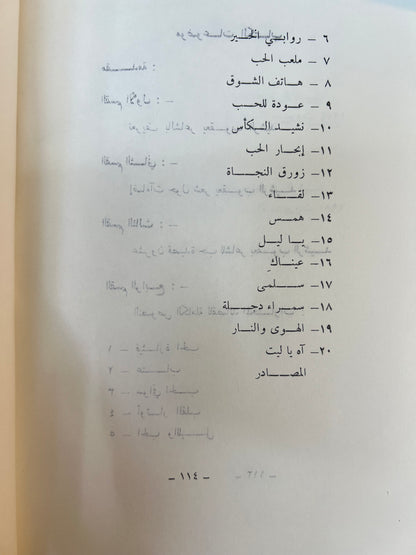 ٦ – روابي الخير
٧ – ملعب الحب
٨ – هاتف الشوق
٩ – عودة للحب
١٠– نشيد الكأس
١١– إبحار الحب
١٢– زورق النجاة
١٣– لقاء
١٤– همس
١٥– يا ليل
١٦– عيناكِ
١٧– سلمى
١٨– سمراء دجلة
١٩– الهوى والنار
٢٠– آه يا ليت
المصادر
– ١١٤ –